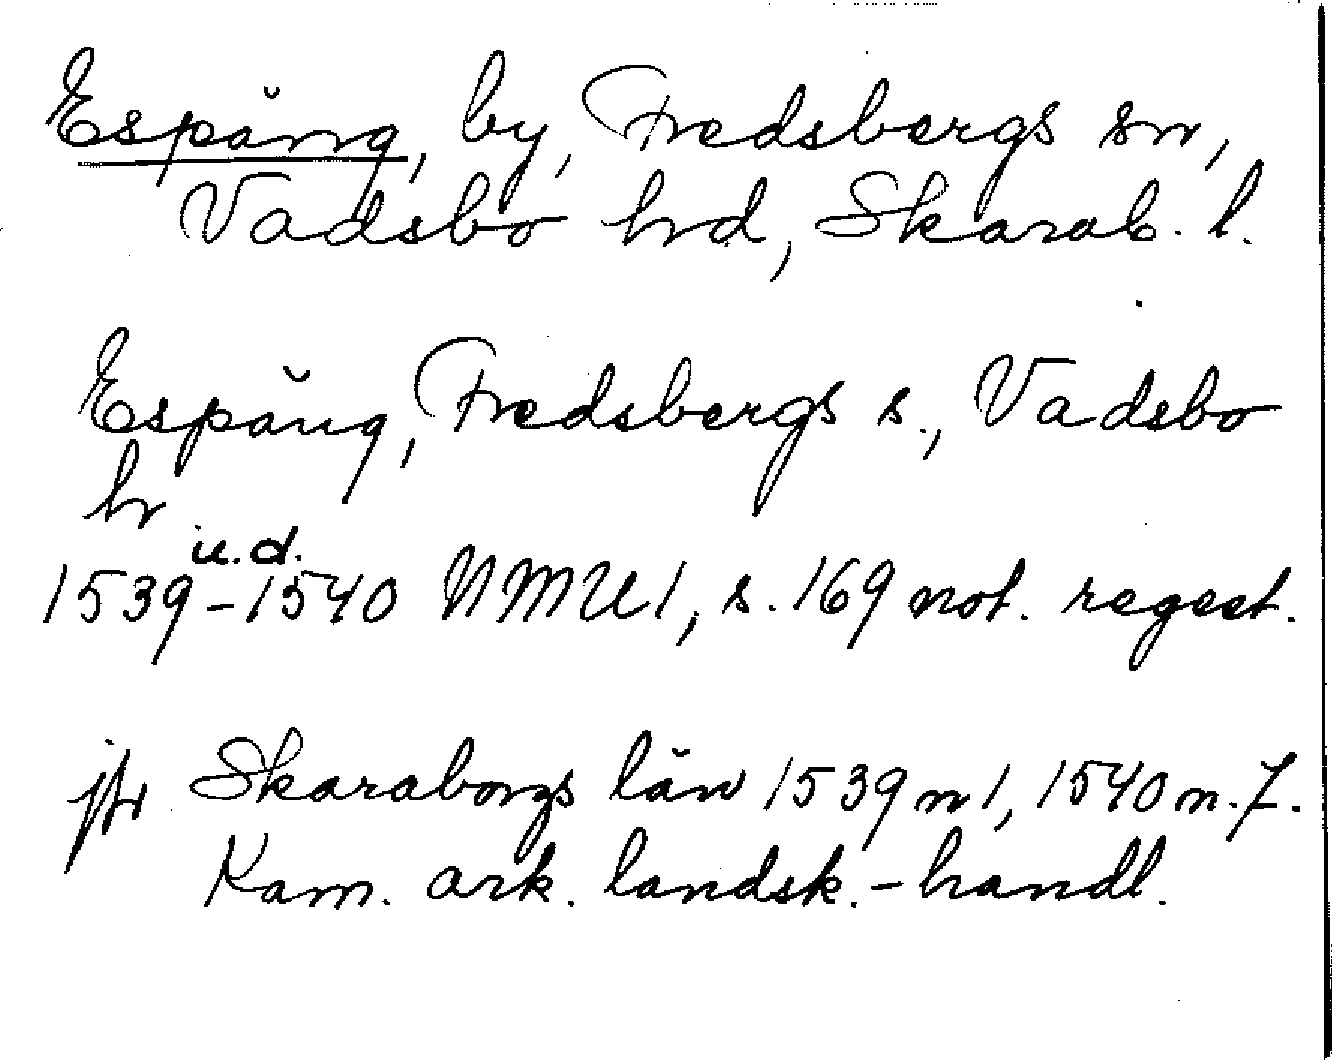 Espång, by, Fredsbergs sn,
Vadsbo hd, Skarab. l.
Espång, Fredsbergs s., Vadsbo
hr
u.d.
1539-1540 NMU1, s. 169 not. regest.
jfr Skaraborgs län 1539 n 1, 1540 n. 7.
Kam. ark. landsk.-handl.